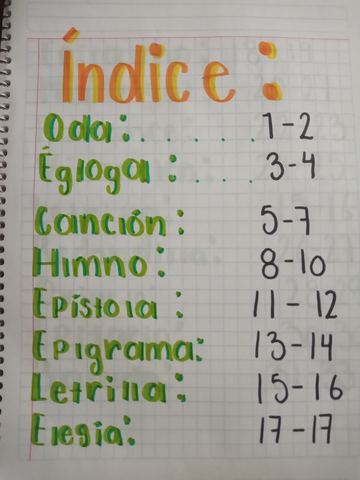 Índice:
Oda:....... 1-2
Égloga:.... 3-4
Canción: 5-7
Himno: 8-10
Epístola: 11-12
Epigrama: 13-14
Letrilla: 15-16
Elegia: 17-17